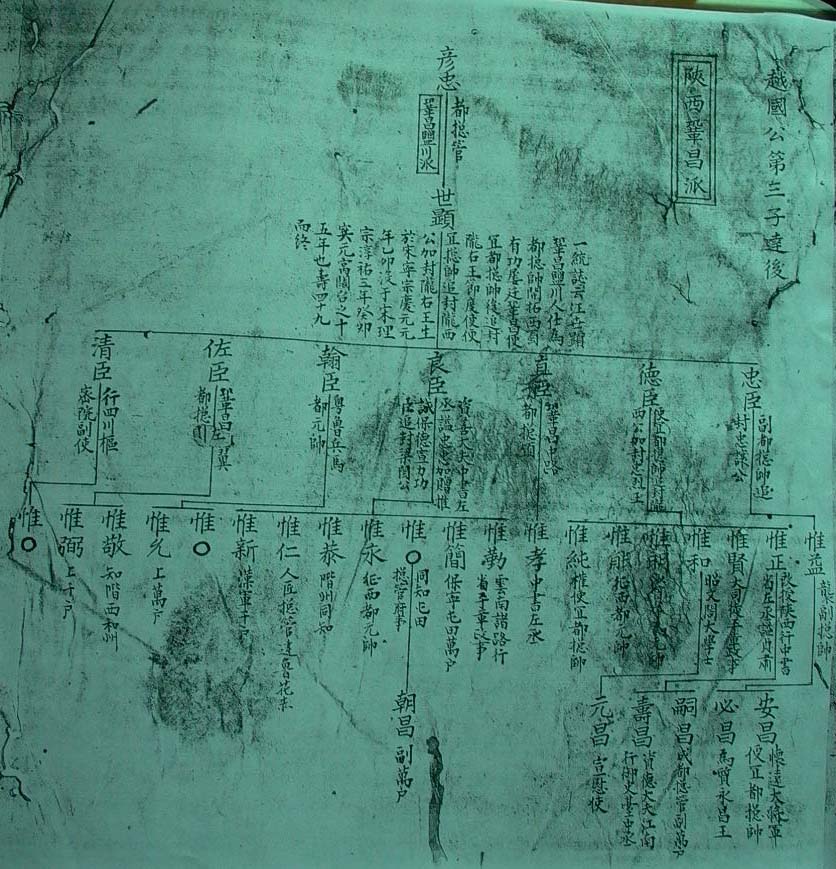 越國公第三子達後
陝西鞏昌派
彦忠
都揔管
鞏昌鹽川派
世顯
一統誌云汪世顯
鞏昌鹽川人仕為
都揔帥開拓西蜀
有功屡迁鞏昌便
冝都揔帥後追封
隴右王御度使便
冝揔帥追封隴西
公加封隴右王生
於宋寧宗慶元元
年乙卯没于宋理
宗淳祐三年癸卯
寔元窩闊台之十
五年也壽四十九
而終
忠臣
副都揔帥追
封忠讓公
德臣
便宜都揔帥追封隴
西公加封忠烈王
直臣
鞏昌中路
都揔領
良臣
資善大夫中書左
丞謚忠惠加贈推
誠保德宣力功
臣追封梁國公
翰臣
粤魯兵馬
都元帥
佐臣
鞏昌左翼
都揔領
清臣
行四川樞
密院副使
惟益
襲副揔帥
惟正
改授陝西行中書
省左丞謚貞肅
惟賢
大司徒
惟和
昭文閣大學士
惟明
惟能
征西都元帥
惟純
權便宜都揔帥
惟孝
中書左丞
惟勤
雲南諸路行
省平章政事
惟簡
保寧屯田萬户
惟○
同知屯田
揔管府事
惟永
征西都元帥
惟恭
階州同知
惟仁
人匠揔管達魯花赤
惟新
漢軍千户
惟○
惟允
上萬户
惟敬
知階西和州
惟弼
上千户
惟○
安昌
懷遠大將軍
便宜都揔帥
必昌
嗣昌
成都揔管副萬户
壽昌
資德大夫江南
行御史臺中丞
元昌
宣慰使
朝昌
副萬户